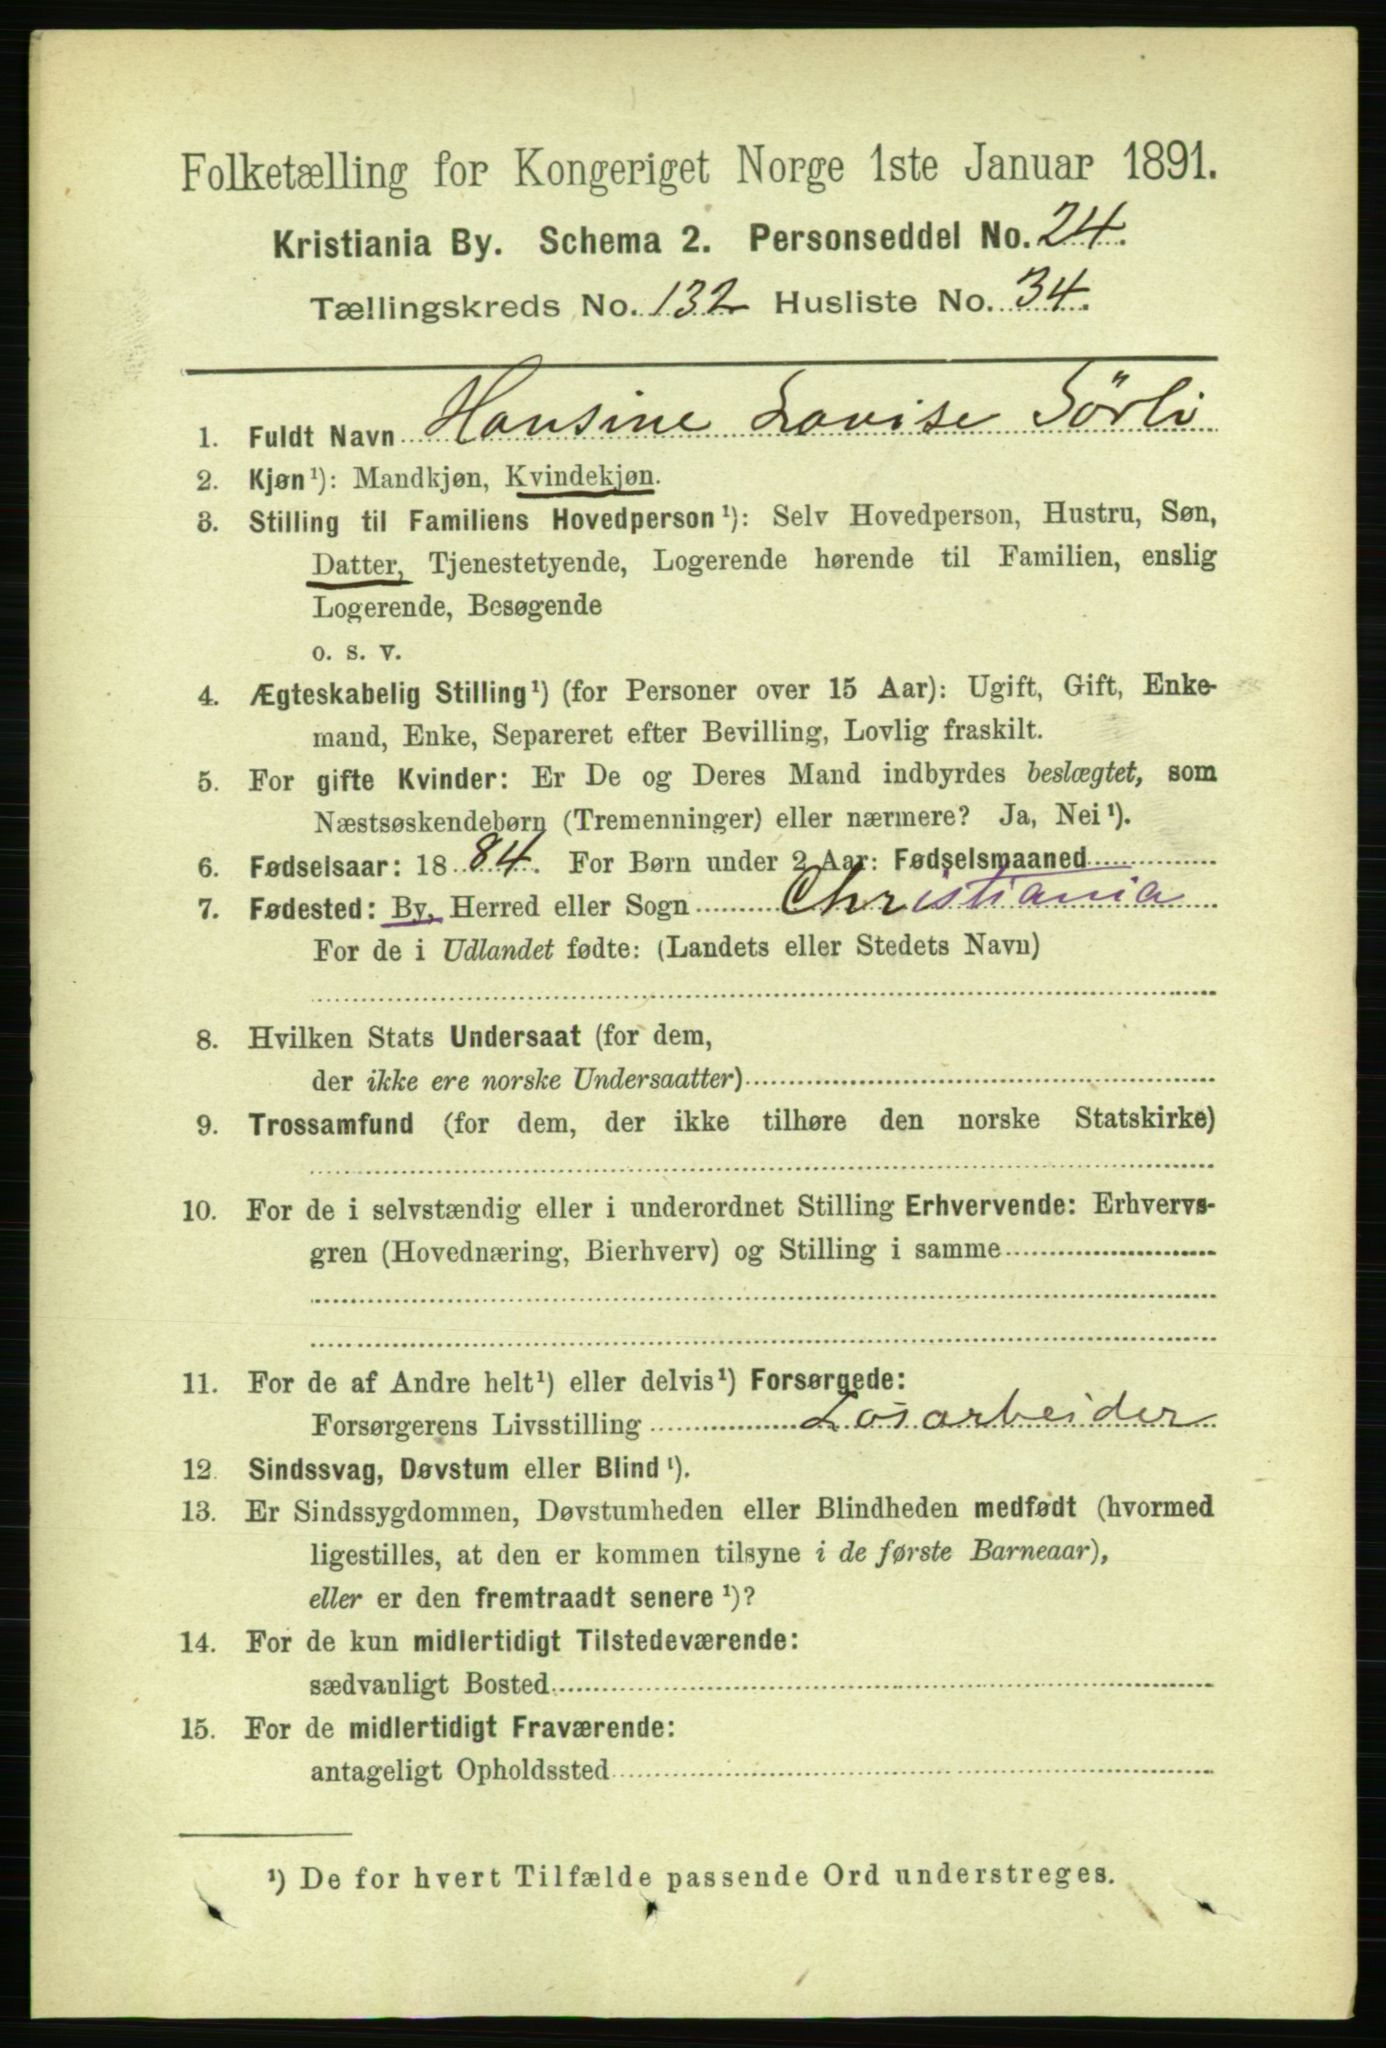 Folketælling for Kongeriget Norge 1ste Januar 1891.
Kristiania By. Schema 2. Personseddel No. 24.
Tællingskreds No. 132 Husliste No. 34.
1. Fuldt Navn Hansine Lovise Sörli
2. Kjøn¹): Mandkjøn, Kvindekjøn.
3. Stilling til Familiens Hovedperson¹): Selv Hovedperson, Hustru, Søn,
Datter, Tjenestetyende, Logerende hørende til Familien, enslig
Logerende, Besøgende
o. s. v.
4. Ægteskabelig Stilling¹) (for Personer over 15 Aar): Ugift, Gift, Enke-
mand, Enke, Separeret efter Bevilling, Lovlig fraskilt.
5. For gifte Kvinder: Er De og Deres Mand indbyrdes beslægtet, som
Næstsøskendebørn (Tremenninger) eller nærmere? Ja, Nei¹).
6. Fødselsaar: 1884. For Børn under 2 Aar: Fødselsmaaned
7. Fødested: By, Herred eller Sogn Christiania
For de i Udlandet fødte: (Landets eller Stedets Navn)
8. Hvilken Stats Undersaat (for dem,
der ikke ere norske Undersaatter)
9. Trossamfund (for dem, der ikke tilhøre den norske Statskirke)
10. For de i selvstændig eller i underordnet Stilling Erhvervende: Erhvervs-
gren (Hovednæring, Bierhverv) og Stilling i samme
11. For de af Andre helt¹) eller delvis¹) Forsørgede:
Forsørgerens Livsstilling Løsarbeider
12. Sindssvag, Døvstum eller Blind¹).
13. Er Sindssygdommen, Døvstumheden eller Blindheden medfødt (hvormed
ligestilles, at den er kommen tilsyne i de første Barneaar),
eller er den fremtraadt senere¹)?
14. For de kun midlertidigt Tilstedeværende:
sædvanligt Bosted
15. For de midlertidigt Fraværende:
antageligt Opholdssted
¹) De for hvert Tilfælde passende Ord understreges.